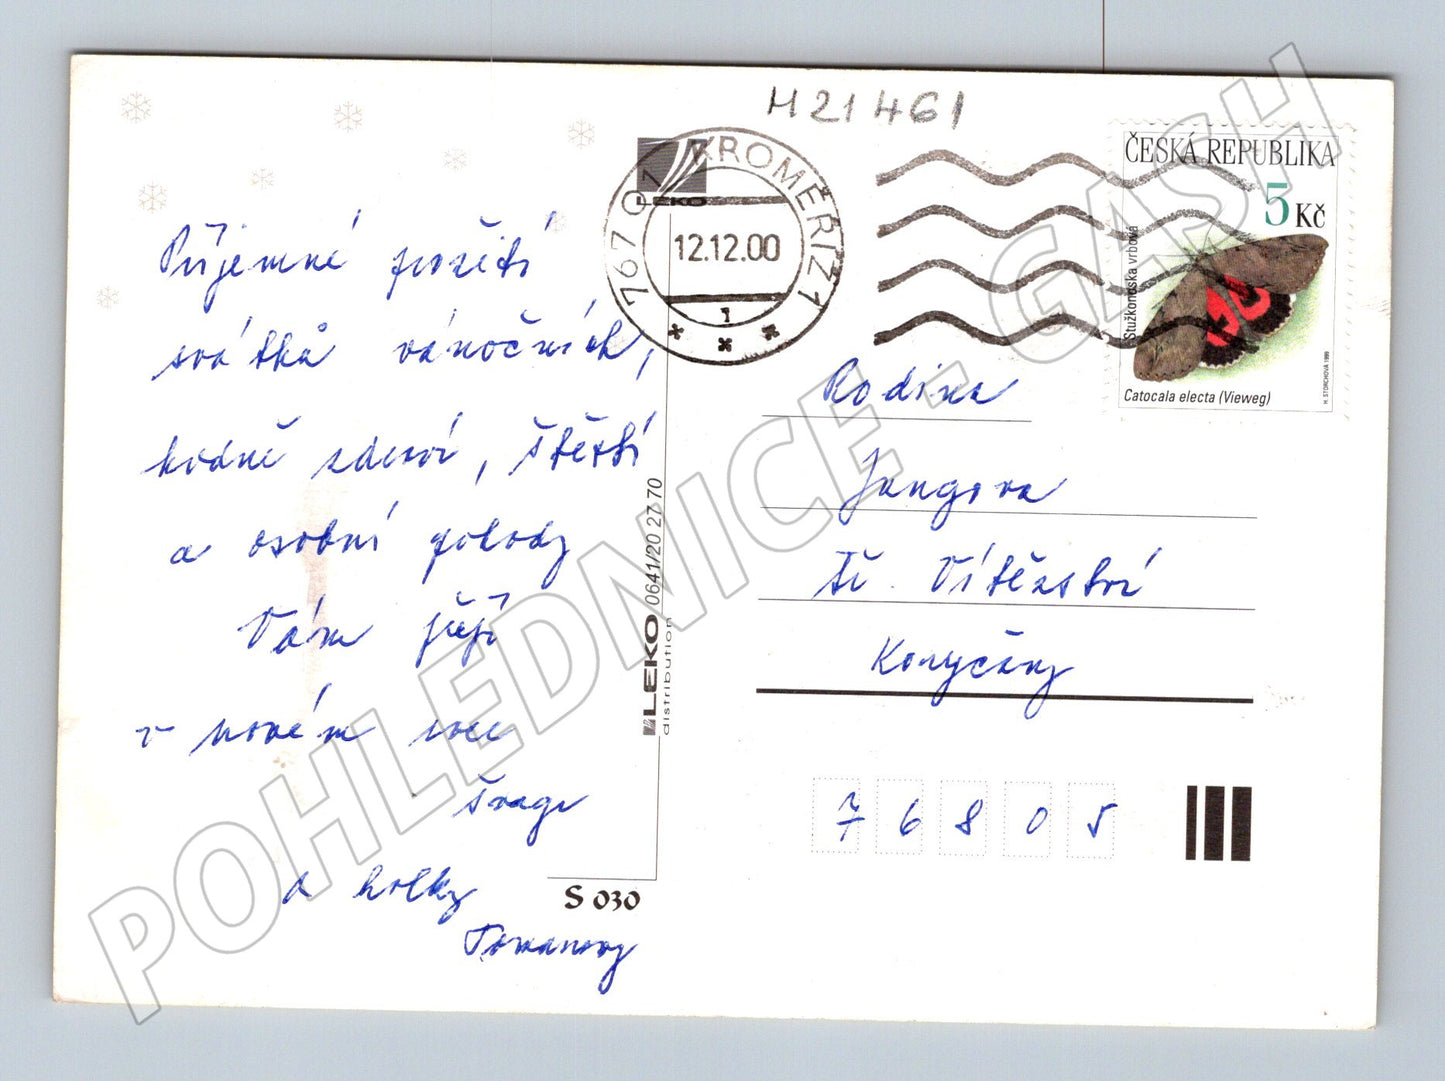 M21461
767 01 KROMĚŘÍŽ 1
12.12.00
1
LEKO
ČESKÁ REPUBLIKA
5 Kč
Stužkonoska vrbová
Catocala electa (Vieweg)
H. STORCHOVÁ 1999
Příjemné prožití
svátků vánočních,
hodně zdraví, štěstí
a osobní pohody
Vám přejí
v novém roce
švagr
a holky
Tomanovy
LEKO 0641/20 27 70
distribution
S 030
Rodina
Jungova
Tř. Vítězství
Koryčany
76805
POHLEDNICE - GASH